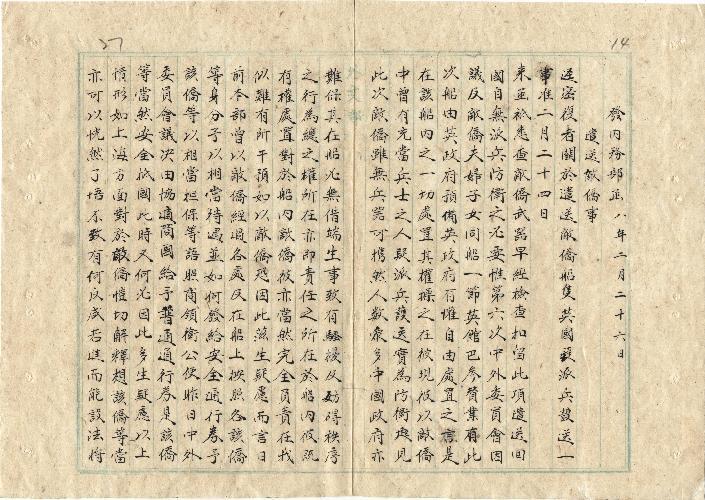 14
發內務部函 八年二月二十六日
遣送敵僑事
逕密復者關於遣送敵僑船隻英國議派兵護送一
事准二月二十四日
來函祗悉查敵僑武器早經檢查扣留此項遣送回
國自無派兵防衛之必要惟第六次中外委員會因
議及敵僑夫婦子女同船一節英館巴參贊業有此
次船由英政府預備英政府有權自由處置之言是
在該船內之一切處置其權操之在彼現彼以敵僑
中曾有充當兵士之人疑派兵護送實為防衛起見
此次敵僑雖無兵器可攜然人數衆多中國政府亦
難保其在船尤無借端生事致有騷擾及妨碍秩序
之行為總之權所在亦即責任之所在於船內彼既
有權處置對於船內敵僑彼亦當然完全負責任我
似難有所干預如以敵僑恐因此滋生疑慮而言日
前本部曾以敵僑經過各處及在船上按照各該僑
等身分予以相當待遇並如何發給安全通行券予
該僑等以相當担保等語照商領銜公使昨日中外
委員會議決由協通商國給予普通通行券是該僑
等當然安全抵國此時又何尤因此多生疑慮以上
情形如上海方面對於敵僑愷切解釋想該僑等當
亦可以恍然了悟不致有何反感否進而能設法將
27